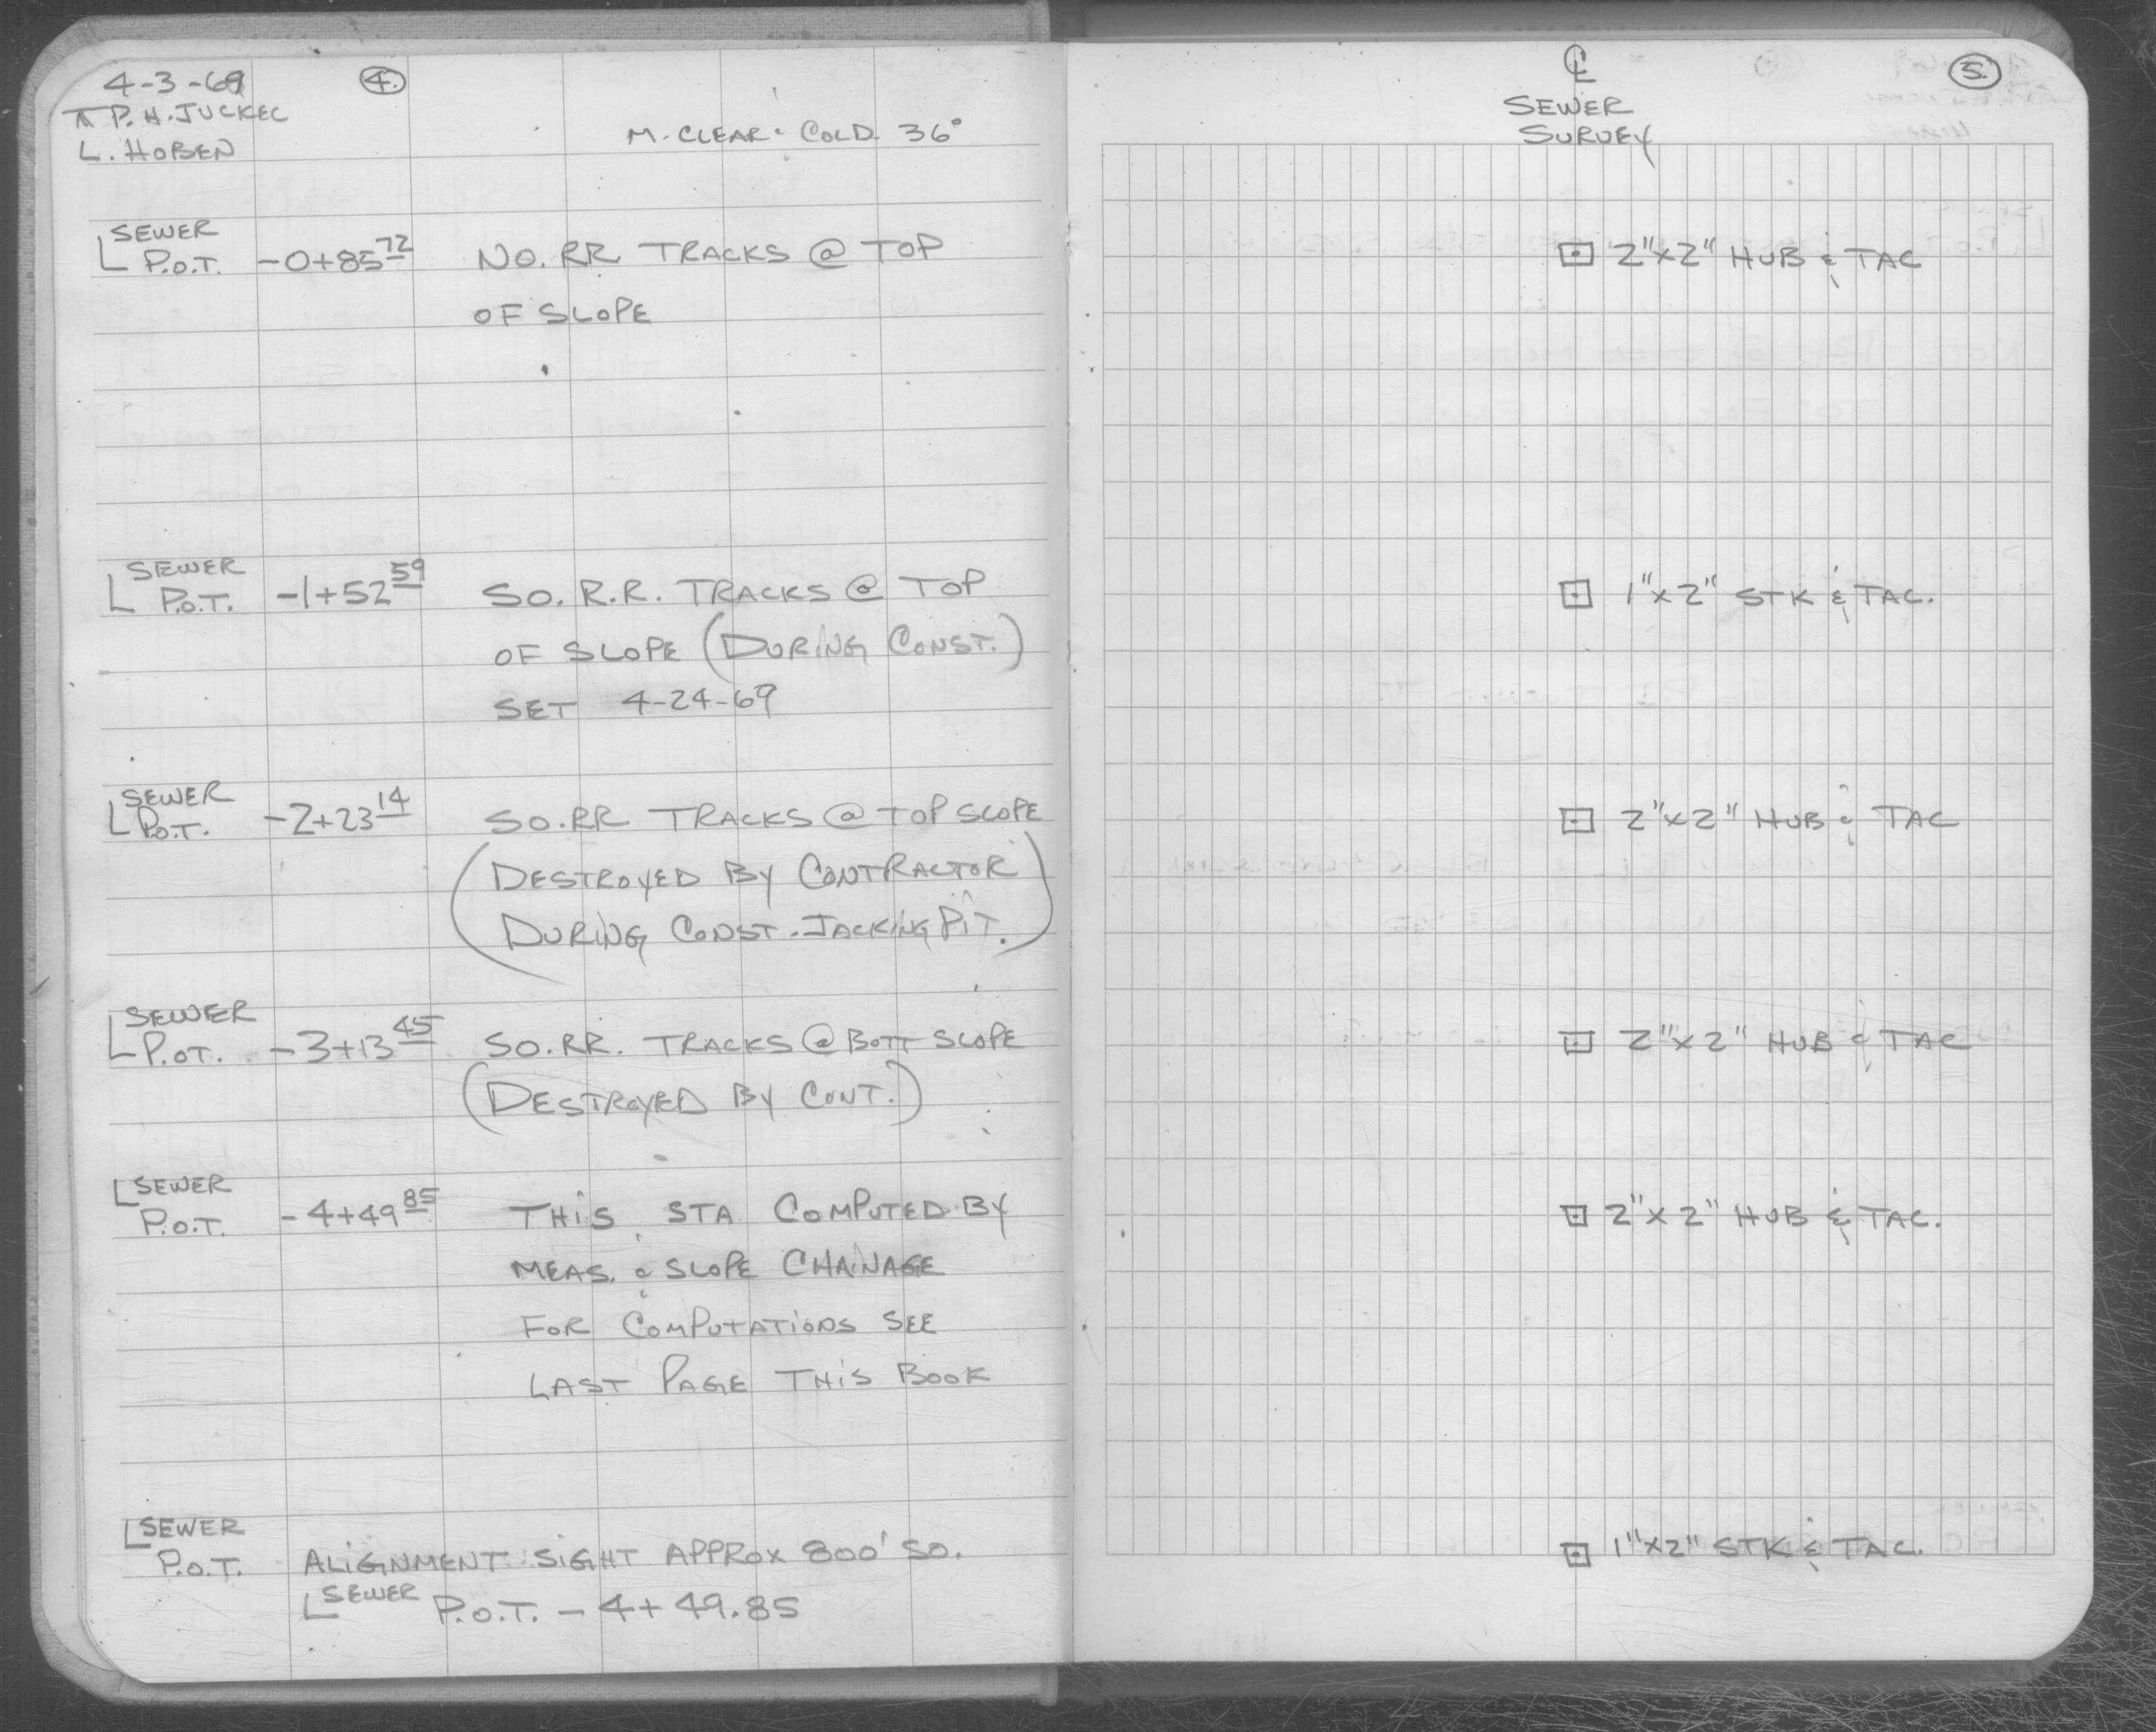 4-3-69
④
⊼ P. H. JUCKEC
L. HOBEN
M. CLEAR & COLD 36°
L SEWER
P.O.T. -0+85 72 NO. RR TRACKS @ TOP
OF SLOPE
L SEWER
P.O.T. -1+52 59 SO. R.R. TRACKS @ TOP
OF SLOPE (DURING CONST.)
SET 4-24-69
L SEWER
P.O.T. -2+23 14 SO. RR TRACKS @ TOP SLOPE
(DESTROYED BY CONTRACTOR
DURING CONST. JACKING PIT.)
L SEWER
P.O.T. -3+13 45 SO. RR. TRACKS @ BOTT SLOPE
(DESTROYED BY CONT.)
L SEWER
P.O.T. -4+49 85 THIS STA COMPUTED BY
MEAS. & SLOPE CHAINAGE
FOR COMPUTATIONS SEE
LAST PAGE THIS BOOK
L SEWER
P.O.T. ALIGNMENT SIGHT APPROX 800' SO.
L SEWER P.O.T. -4+49.85
℄
⑤
SEWER
SURVEY
⊡ 2"x2" HUB & TAC
⊡ 1"x2" STK & TAC.
⊡ 2"x2" HUB & TAC
⊡ 2"x2" HUB & TAC
⊡ 2"x2" HUB & TAC.
⊡ 1"x2" STK & TAC.